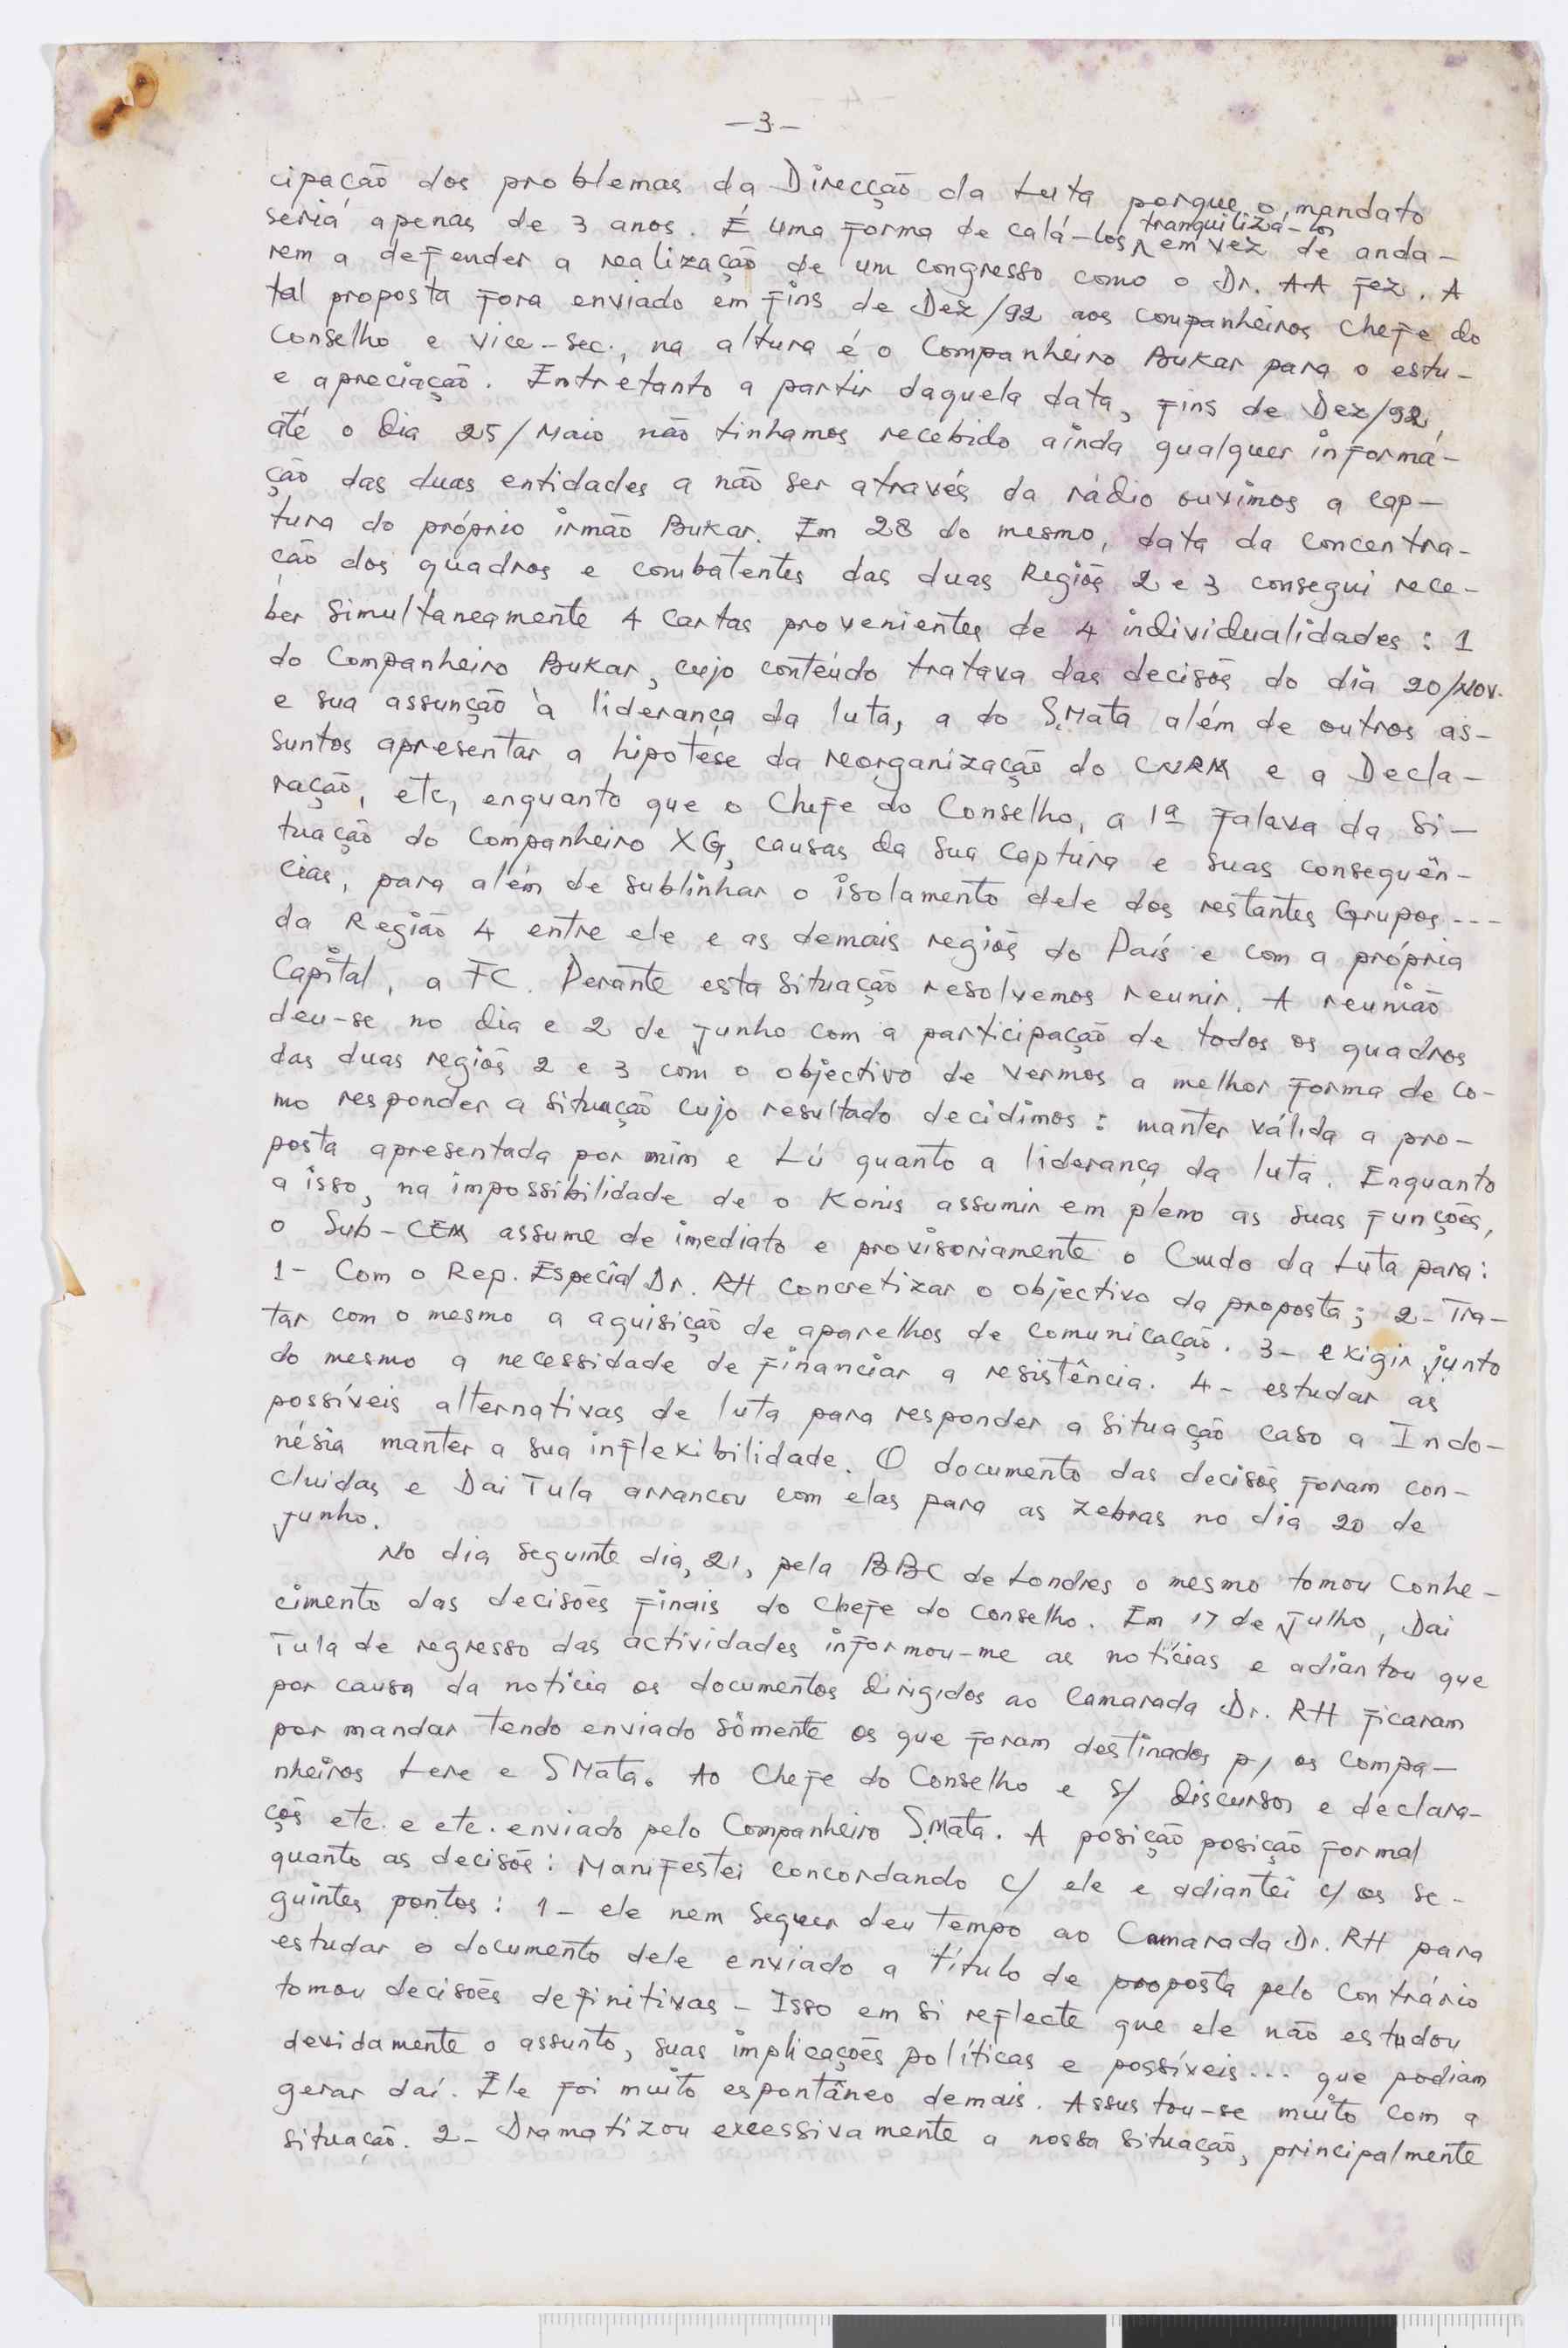 -3-
cipação dos problemas da Direcção da Luta porque o mandato
seria apenas de 3 anos. É uma forma de calá-los tranquilizá-los em vez de anda-
rem a defender a realização de um congresso como o Dr. AA fez. A
tal proposta fora enviado em fins de Dez/92 aos companheiros Chefe do
Conselho e vice-sec., na altura é o Companheiro Bukar para o estu-
e apreciação. Entretanto a partir daquela data, fins de Dez/92,
até o dia 25/Maio não tinhamos recebido ainda qualquer informa-
ção das duas entidades a não ser através da rádio ouvimos a cap-
tura do próprio irmão Bukar. Em 28 do mesmo, data da concentra-
ção dos quadros e combatentes das duas Regiõs 2 e 3 consegui rece-
ber simultaneamente 4 cartas provenientes de 4 individualidades : 1
do Companheiro Bukar, cujo conteúdo tratava das decisõs do dia 20/Nov.
e sua assunção à liderança da luta, a do S.Mata além de outros as-
suntos apresentar a hipotése da reorganização do CNRM e a Decla-
ração, etc, enquanto que o Chefe do Conselho, a 1ª falava da si-
tuação do Companheiro XG, causas da sua captura e suas consequên-
cias, para além de sublinhar o isolamento dele dos restantes Grupos---
da Região 4 entre ele e as demais regiõs do País e com a própria
Capital, a FC. Perante esta situação resolvemos reunir. A reunião
deu-se no dia e 2 de Junho com a participação de todos os quadros
das duas regiõs 2 e 3 com o objectivo de vermos a melhor forma de co-
mo responder a situação cujo resultado decidimos : manter válida a pro-
posta apresentada por mim e Lú quanto a liderança da luta. Enquanto
a isso, na impossibilidade de o Konis assumir em pleno as suas funções,
o Sub-CEM assume de imediato e provisoriamente o Cmdo da Luta para :
1- Com o Rep. Especial Dr. RH concretizar o objectivo da proposta; 2- Tra-
tar com o mesmo a aquisição de aparelhos de comunicação. 3- exigir junto
do mesmo a necessidade de financiar a resistência. 4- estudar as
possíveis alternativas de luta para responder a situação caso a Indo-
nésia manter a sua inflexibilidade. O documento das decisõs foram con-
cluidas e Dai Tula arrancou com elas para as zebras no dia 20 de
Junho.
No dia seguinte dia, 21, pela BBC de Londres o mesmo tomou conhe-
cimento das decisões finais do Chefe do Conselho. Em 17 de Julho, Dai
Tula de regresso das actividades informou-me as notícias e adiantou que
por causa da notícia os documentos dirigidos ao Camarada Dr. RH ficaram
por mandar tendo enviado sômente os que foram destinados p/ os compa-
nheiros Lere e SMata. Ao Chefe do Conselho e s/ discursos e declara-
çõs etc. e etc. enviado pelo Companheiro S.Mata. A posição posição formal
quanto as decisõs : Manifestei concordando c/ ele e adiantei c/ os se-
guintes pontos : 1- ele nem sequer deu tempo ao Camarada Dr. RH para
estudar o documento dele enviado a título de proposta pelo contrário
tomou decisões definitivas - Isso em si reflecte que ele não estudou
devidamente o assunto, suas implicações políticas e possíveis... que podiam
gerar daí. Ele foi muito espontâneo demais. Assustou-se muito com a
situação. 2- Dramatizou excessivamente a nossa situação, principalmente